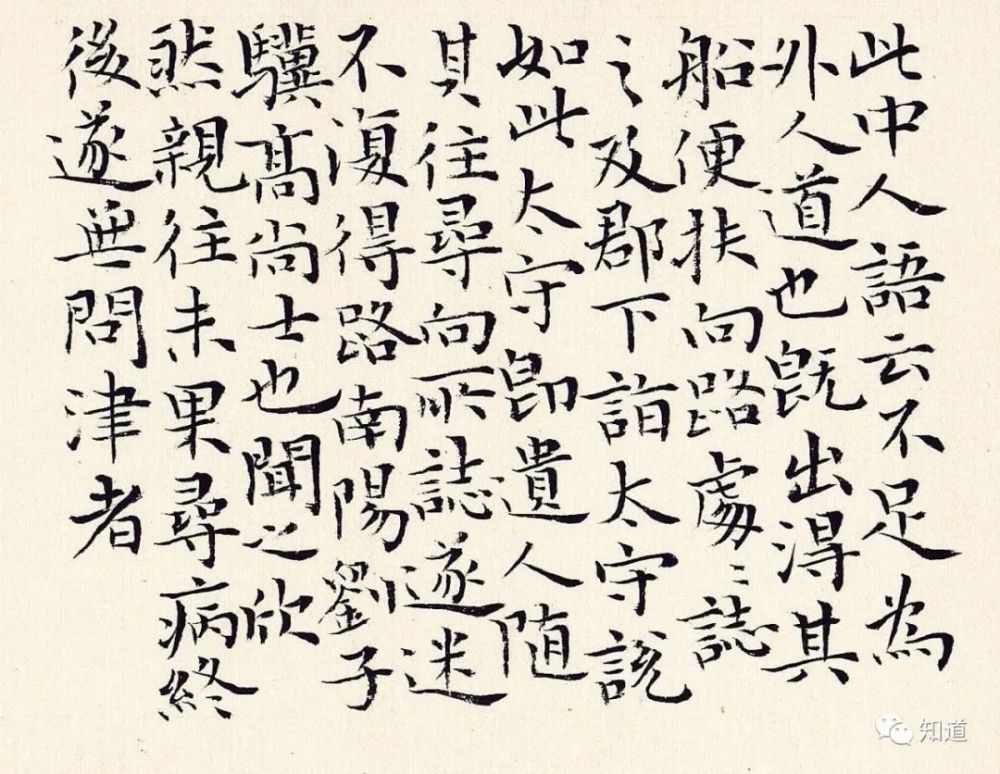 此中人語云不足為
外人道也既出得其
船便扶向路處〻誌
之及郡下詣太守說
如此太守即遺人隨
其往尋向所誌遂迷
不復得路南陽劉子
驥高尚士也聞之欣
然親往未果尋病終
後遂無問津者
知道